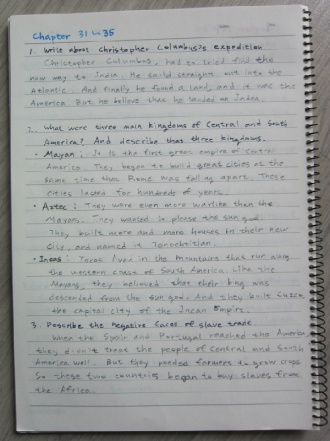 Chapter 31 ~ 35
1. Write about Christopher Columbus's expedition.
Christopher Columbus, had to tried find the
new way to India. He saild straight out into the
Atlantic. And finally he found a land, and it was the
America. But he believe that he landed on India.
2. What were three main kingdoms of Central and South
America? And describe that three kingdoms.
• Mayan : It is the first great empire of Central
America. They began to build great cities at the
same time that Rome was falling apart. These
cities lasted for hundreds of years.
• Aztec : They were even more warlike than the
Mayans. They wanted to please the sun god.
They built more and more houses in their new
city, and named it Tenochtitlan.
• Incas : Incas lived in the mountains that run along
the western coast of South America. Like the
Mayans, they believed that their king was
descended from the sun god. And they built Cuzco,
the capital city of the Incan Empire.
3. Describe the negative faces of slave trade
When the Spain and Portugal reached the America,
they didn't treat the people of Central and South
America well. But they needed farmers to grow crops.
So these two countries began to buy slaves from
the Africa.